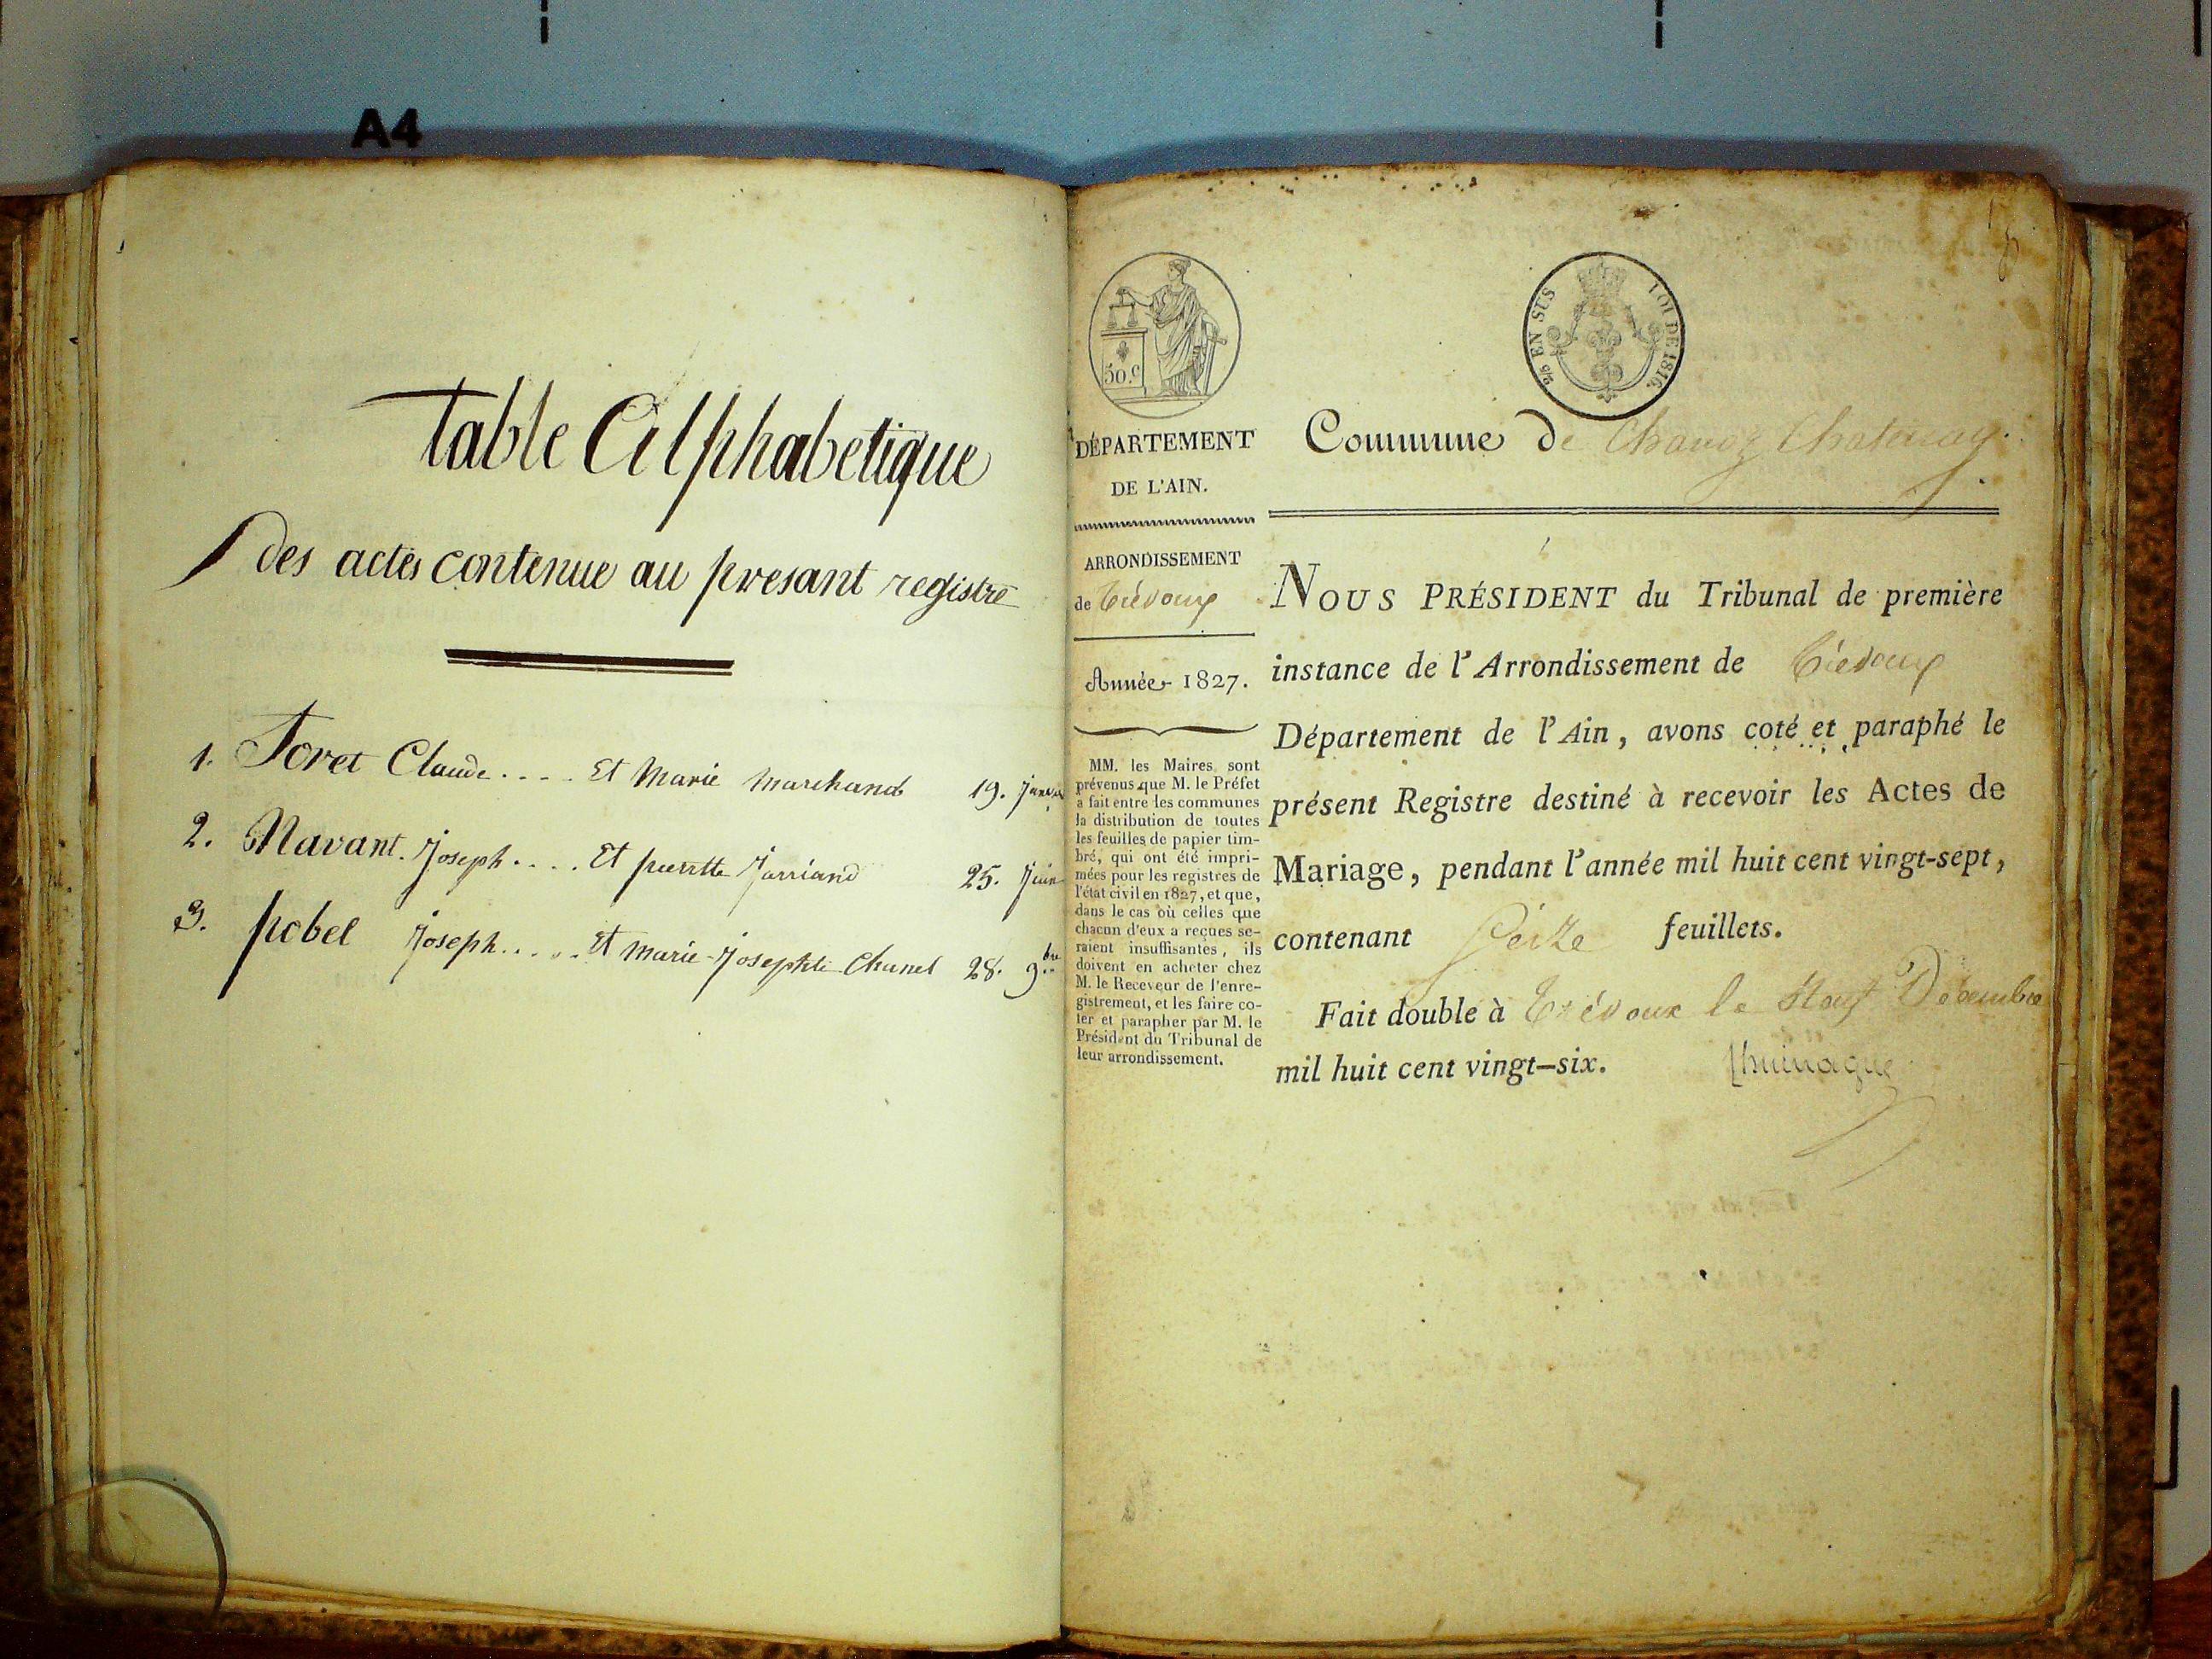 A4
Table Alphabetique
des actes contenue au presant registre
1. Foret Claude .... Et Marie Marchand 19. janvier
2. Navant Joseph .... Et pierrette Jarriand 25. Juin
3. pobel Joseph ..... Et Marie Josephte Chanel 28. 9.bre
50.c
2/5 EN SUS LOI DE 1816.
DÉPARTEMENT
DE L'AIN.
ARRONDISSEMENT
de Trévoux
Année 1827.
MM. les Maires sont
prévenus que M. le Préfet
a fait entre les communes
la distribution de toutes
les feuilles de papier tim-
bré, qui ont été impri-
mées pour les registres de
l'état civil en 1827, et que,
dans le cas où celles que
chacun d'eux a reçues se-
raient insuffisantes, ils
doivent en acheter chez
M. le Receveur de l'enre-
gistrement, et les faire co-
ter et parapher par M. le
Président du Tribunal de
leur arrondissement.
Commune de Chanoz Chatenay.
NOUS PRÉSIDENT du Tribunal de première
instance de l'Arrondissement de Trévoux
Département de l'Ain, avons coté et paraphé le
présent Registre destiné à recevoir les Actes de
Mariage, pendant l'année mil huit cent vingt-sept,
contenant Seize feuillets.
Fait double à Trévoux le Neuf Décembre
mil huit cent vingt-six.